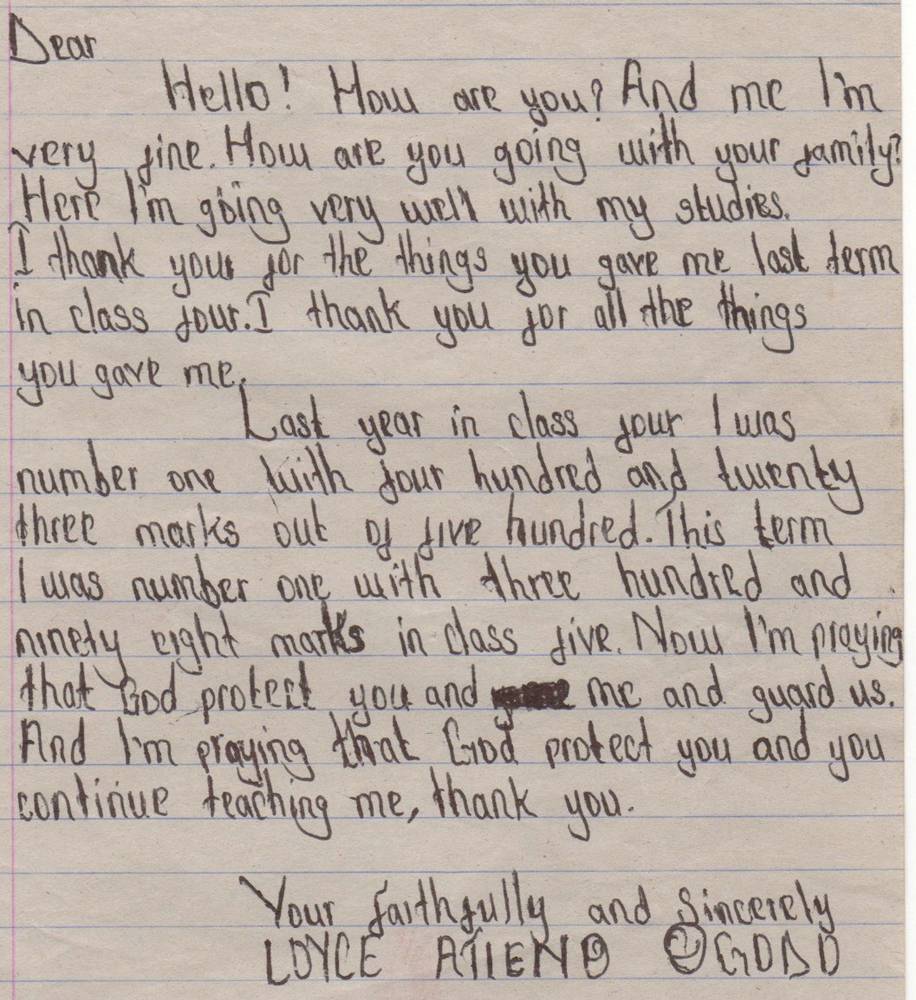 Dear
Hello! How are you? And me I'm
very fine. How are you going with your family?
Here I'm going very well with my studies.
I thank your for the things you gave me last term
in class four. I thank you for all the things
you gave me.
Last year in class four I was
number one with four hundred and twenty
three marks out of five hundred. This term
I was number one with three hundred and
ninety eight marks in class five. Now I'm praying
that God protect you and me and guard us.
And I'm praying that God protect you and you
continue teaching me, thank you.
Your faithfully and Sincerely
LOYCE ATIENO OGODO